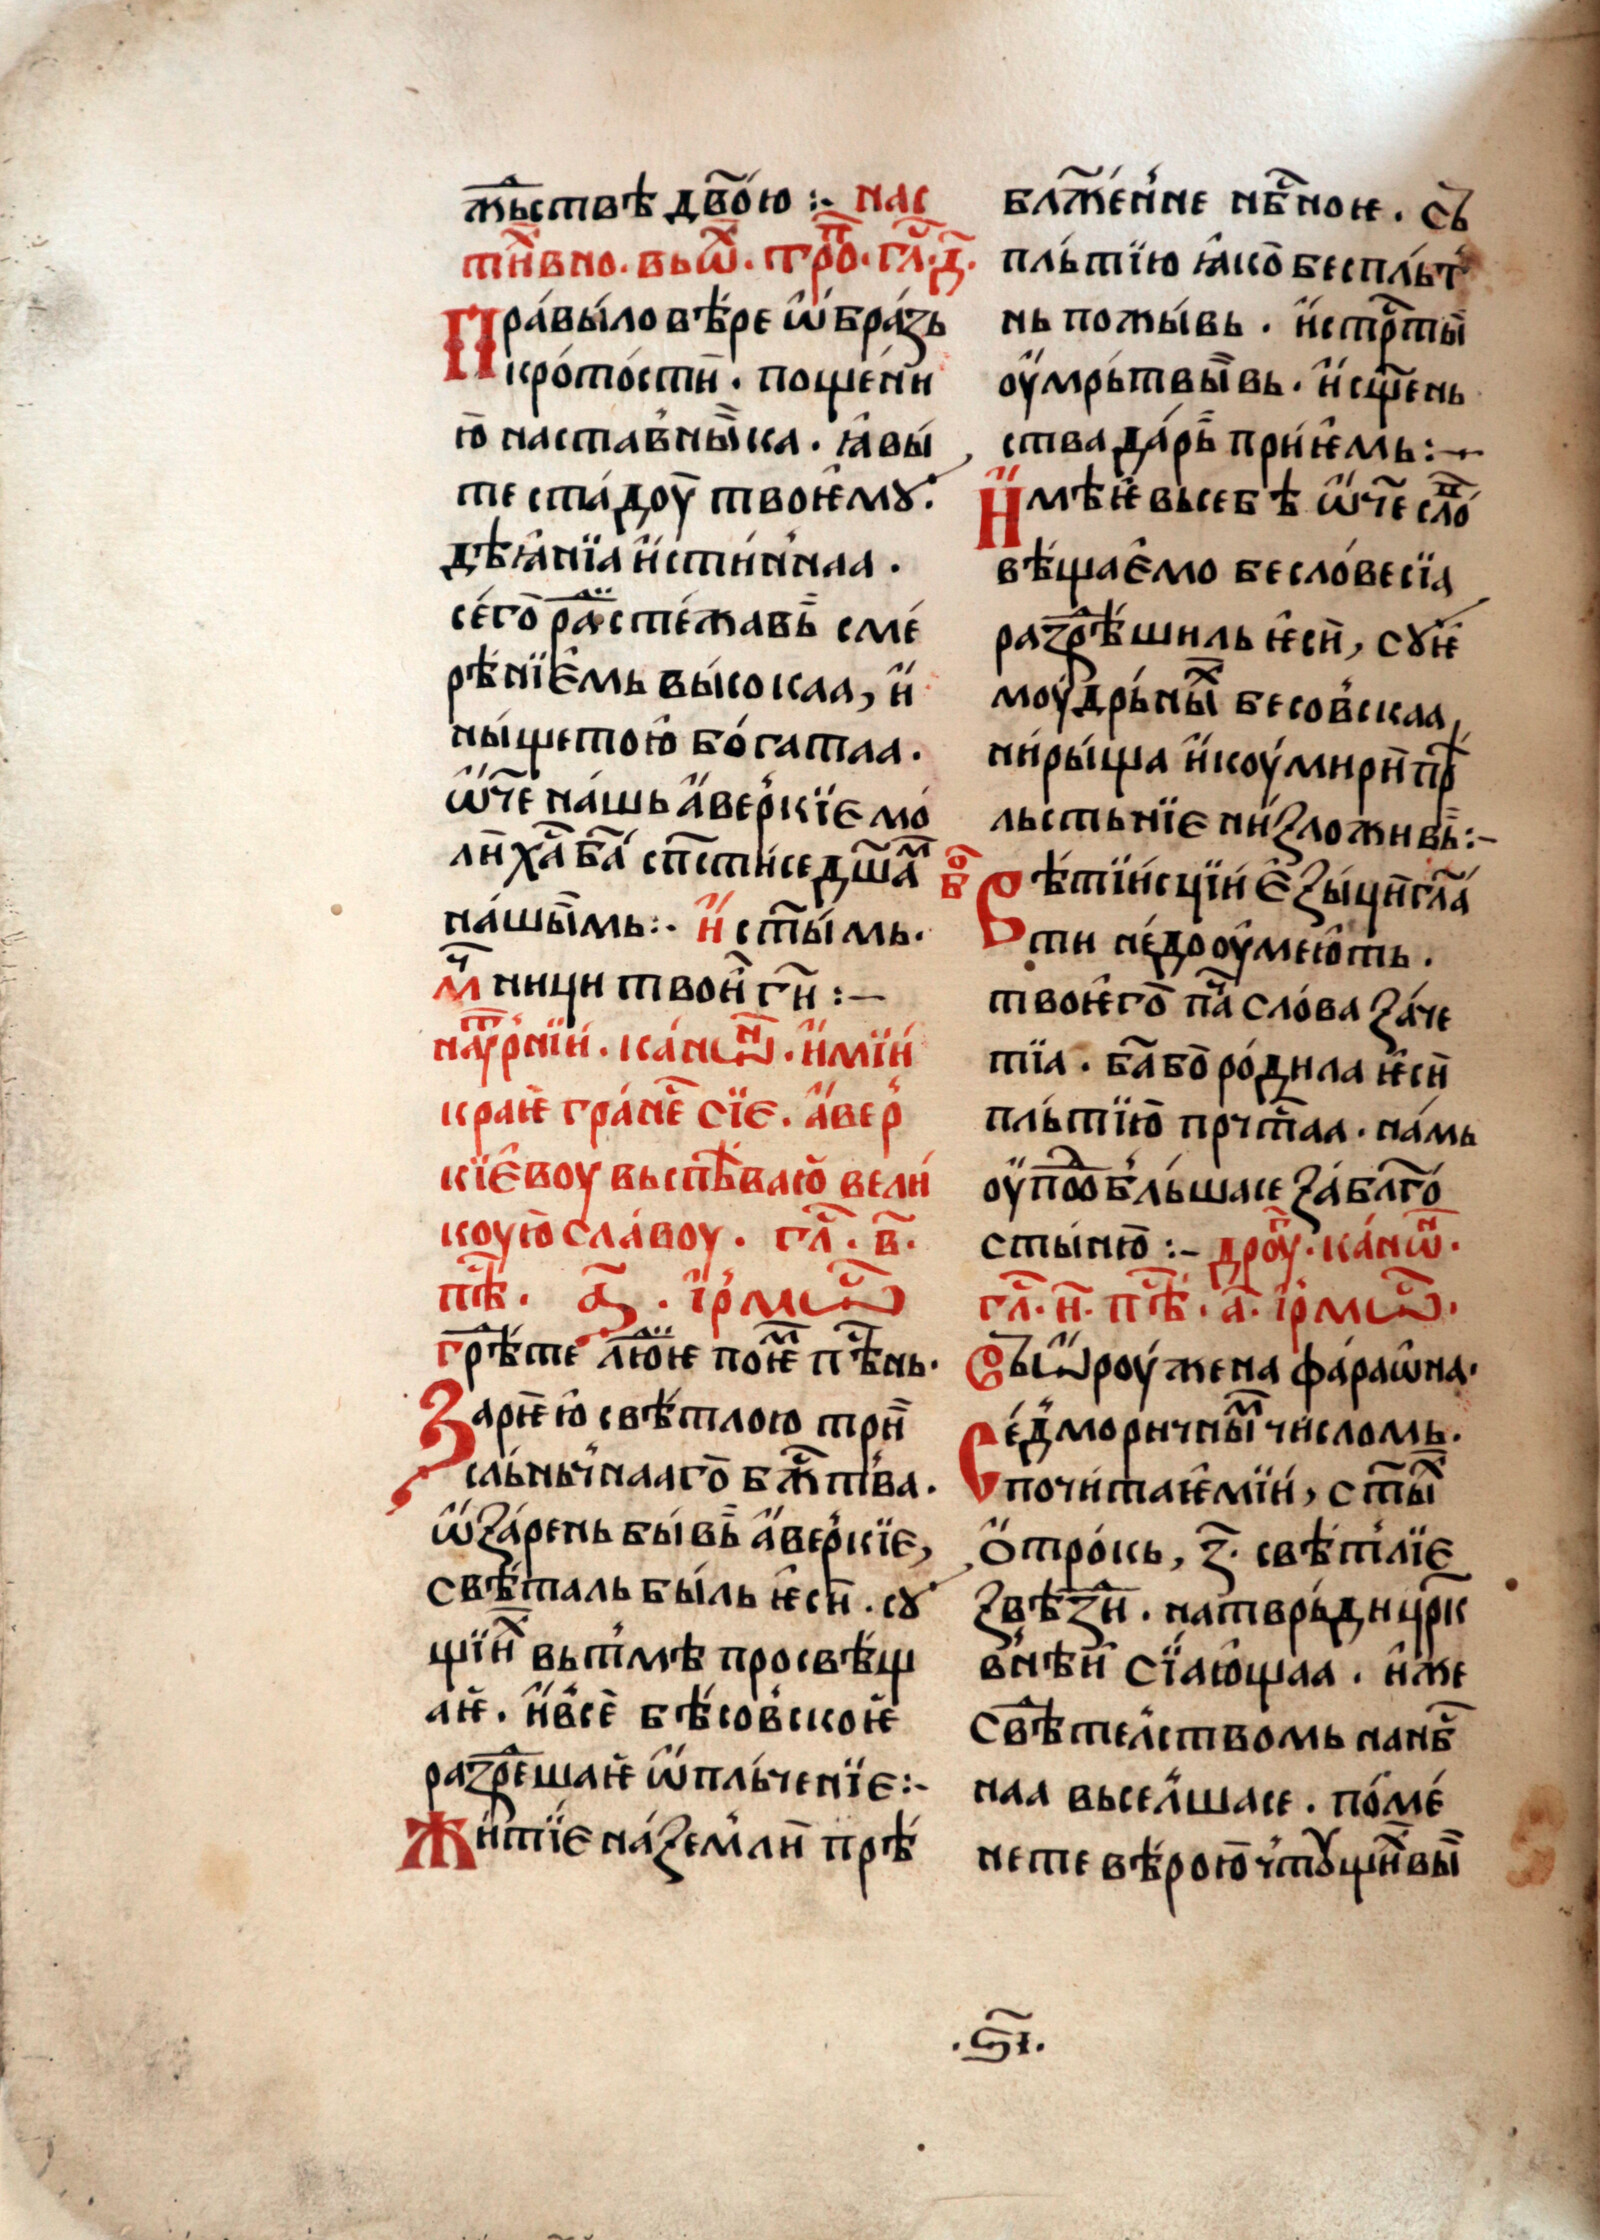 жⷭ҇ьствѣ дво҃ю :· нас
ти҃вно. въѡ҃. трⷪ҇п. гл҃. д҃.
Пра́вы́ло вѣ́ре ѡ҆́бра́зь
кро́то́сти. поще́нїи
ю҃ наста́вны҃ка. ꙗ҆вы́
те ста́доу҃ твоѥ҆мꙋ.
дѣꙗ҆нїа и҆́сти́н̾наа .
се́го҃ ра̑дї сте́жавь҃ сме́
ре́нїє҆мь вы́сокаа, и҆́
ны́щетою҆ бо́гатаа.
ѡ҆́ч҃е на́шь а҆́верⷦ҇кїе мо́
лѝ ха҃ ба҃ спⷭ҇ти́се дш҃аⷨ
на́шы҃мь:· и҆́ ст҃ы́мь.
мⷱ҇ници твои҆̀ гѝ :—
наоу҆трⷩ҇їи́. ка́нѡⷩ. и҆́мїи́
краѥ҆ гра́не҃сїе. а҆́вер
кїє҆воу въспѣ́ваю҆̀ вели́
коую҃ сла́воу. гл҃. в҃.
пⷭ҇ѣ. а҃. ї҆рⷨ҇мѡⷭ
гре́те лю́дїѥ поиⷨ҇ѥ пⷭ҇ѣнь.
Зарѥ҆ю҆ свѣ́тлою трѝ
сль́ньч̾нааго҃ бжⷭ҇тва.
ѡ҆́за́рень бы́вь҃ а҆́верⷦ҇кїе,
свѣ́таль бы́ль ѥ҆сѝ. сꙋ
щїиⷯ вьт̾мѣ просвѣ́щ
аѥ. и҆́в̾се҃ бѣ́со́в̾скоѥ
разре́шаѥ ѡ҆́пль́ченїе:·
Жи́тїе на́земⷧ҇лѝ прѣ́
блⷤ҇е́н̾не нбⷭ҇ноѥ. сь̀
пль́тїю ꙗ҆ко҃ беспль́т
нь пожы́вь. и҆́стрⷭ҇ты́
оу҆́мрь́твы҃вь. и҆́сщ҃ень
ства да́рь҃ прїѥ҆мь:—
И҆мѣѥ҆ вьсебѣ ѡ҆́ч҃е слⷪ҇
вѣ́щає҆мо бесло́весїа
разрѣ́шиль ѥ҆сѝ, сꙋѥ҆
моу́дрь́ныⷯ бесо́в̾скаа,
ни́ры́ща и҆́коуми́рѝ прⷭ҇
льстьнїе ни́зложивь҃:—
бⷪ҇ Вѣ́тїи́сцїи́ є҆зы́цѝгл҃а
ти не́дооу҆ме́ю҆ть.
твоѥ҆го҃ пⷱ҇а сло́ва за́че
тїа. ба҃ бо҃ ро́дила ѥ҆сѝ
пль́тїю҃ прчⷭ҇таа. на́мь
оу҆́подо́бль́шасе за́блг҃о
сты́ню҃ :— дрⷢ҇оу. ка́нѡⷩ.
гл҃. и҃. пⷭ҇ѣ. а҃. ї҆рⷨ҇мѡⷭ.
Вьѡ҆роу́жена фа́раѡна.
Се́д̾моричныⷨ чи́сломь.
почи́таѥ҆мїи́, ст҃ыⷯ
ѻ҆тро́кь, з҃. свѣ́т̾лїе
звѣ́зѝ. натврь́дицрⷦ҇
в̾нѣ́и сїа́ю҆щаа. и҆́же
свѣ́телⷭ҇твомь нанбⷭ҇
наа вьсел̾шасе. по́ме́
нете вѣ́рою҃ чⷭ҇тꙋщиⷯ вы҃
.ѕ҃ı.